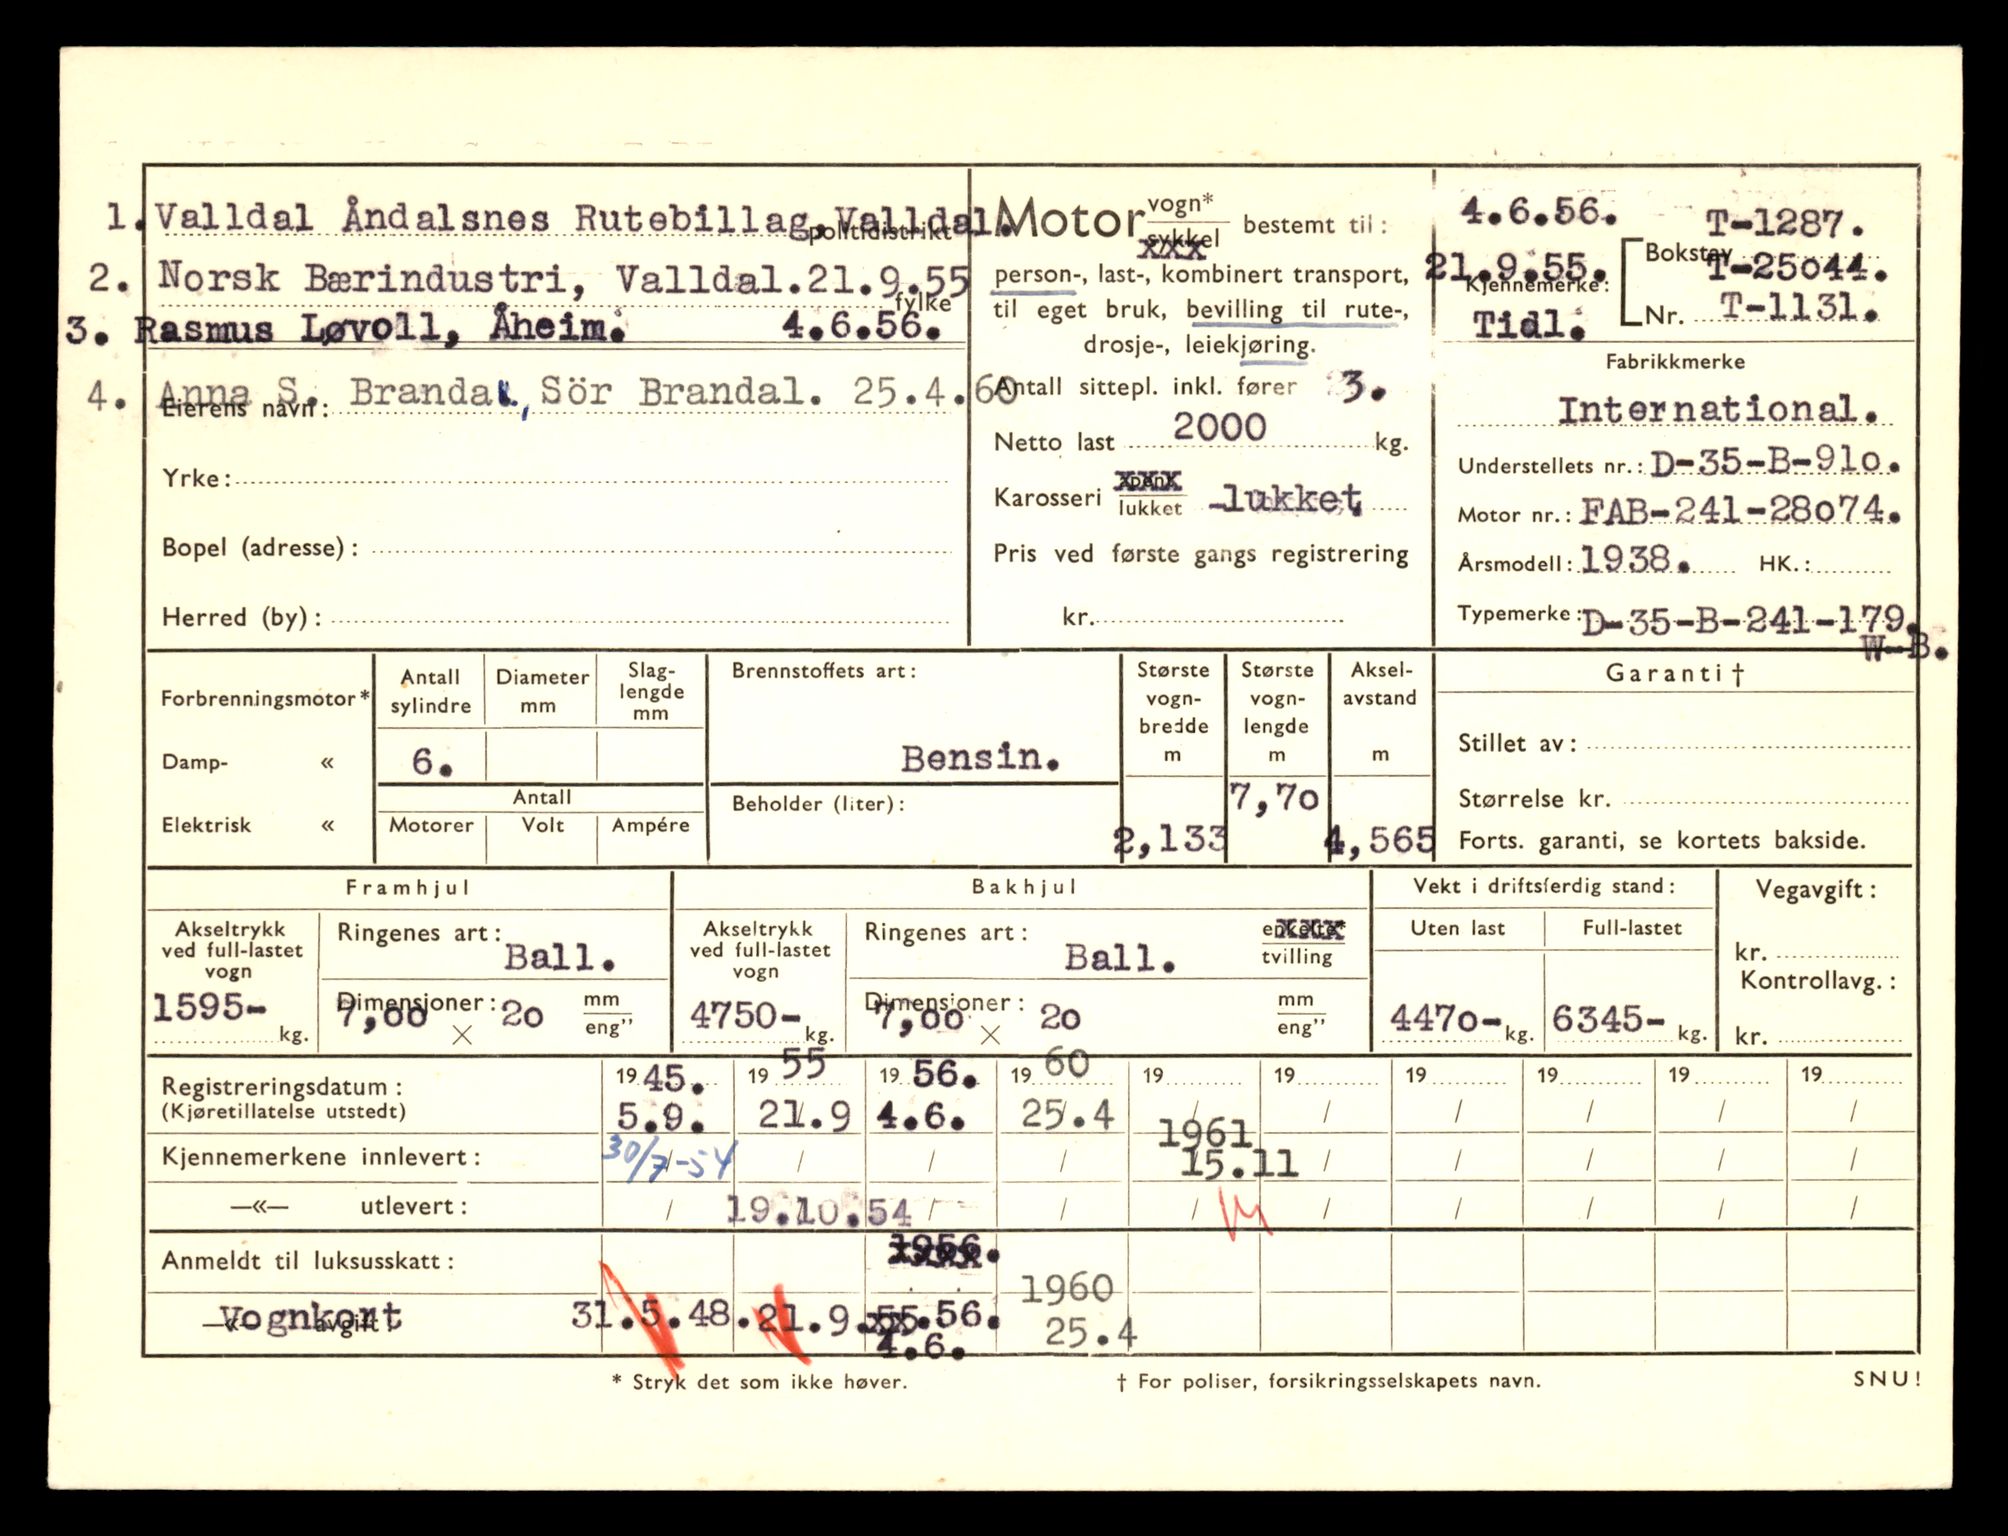 1. Valldal Åndalsnes Rutebillag, Valldal.
politidistrikt
2. Norsk Bærindustri, Valldal. 21.9.55
fylke
3. Rasmus Løvoll, Åheim. 4.6.56.
4. Anna S. Brandal, Sör Brandal. 25.4.60
Eierens navn:
Yrke:
Bopel (adresse):
Herred (by):
Motor vogn* / sykkel bestemt til:
xxx
person-, last-, kombinert transport,
til eget bruk, bevilling til rute-,
drosje-, leiekjøring.
Antall sittepl. inkl. fører 3.
Netto last 2000 kg.
Karosseri åpent / lukket -lukket,
Pris ved første gangs registrering
kr.
4.6.56. T-1287.
21.9.55. Bokstav T-25044.
Kjennemerke:
Tidl. Nr. T-1131.
Fabrikkmerke
International.
Understellets nr.: D-35-B-910.
Motor nr.: FAB-241-28074.
Årsmodell: 1938. HK.:
Typemerke: D-35-B-241-179.
W-B.
Forbrenningsmotor*
Damp- «
Elektrisk «
Antall sylindre
Diameter mm
Slag-lengde mm
6.
Antall
Motorer Volt Ampére
Brennstoffets art:
Bensin.
Beholder (liter):
Største vogn-bredde m
2,133
Største vogn-lengde m
7,70
Aksel-avstand m
4,565
Garanti †
Stillet av:
Størrelse kr.
Forts. garanti, se kortets bakside.
Framhjul
Akseltrykk ved full-lastet vogn
1595- kg.
Ringenes art: Ball.
Dimensjoner: 7,00 × 20 mm / eng”
Bakhjul
Akseltrykk ved full-lastet vogn
4750- kg.
Ringenes art: Ball. enkelte* / tvilling
xxx
Dimensjoner: 7,00 × 20 mm / eng”
Vekt i driftsferdig stand:
Uten last Full-lastet
4470- kg. 6345- kg.
Vegavgift:
kr.
Kontrollavg.:
kr.
Registreringsdatum: 1945. 1955 1956. 1960 19 19 19 19 19 19
(Kjøretillatelse utstedt) 5.9. 21.9 4.6. 25.4 / / / / / /
1961
Kjennemerkene innlevert: 30/7-54 / / / 15.11 / / / / /
—«— utlevert: / 19.10.54 / / / / / / / /
Anmeldt til luksusskatt: 1956.
1960
—«— avgift: Vognkort 31.5.48. 21.9.55. 56. 25.4
4.6.
* Stryk det som ikke høver. † For poliser, forsikringsselskapets navn. SNU!